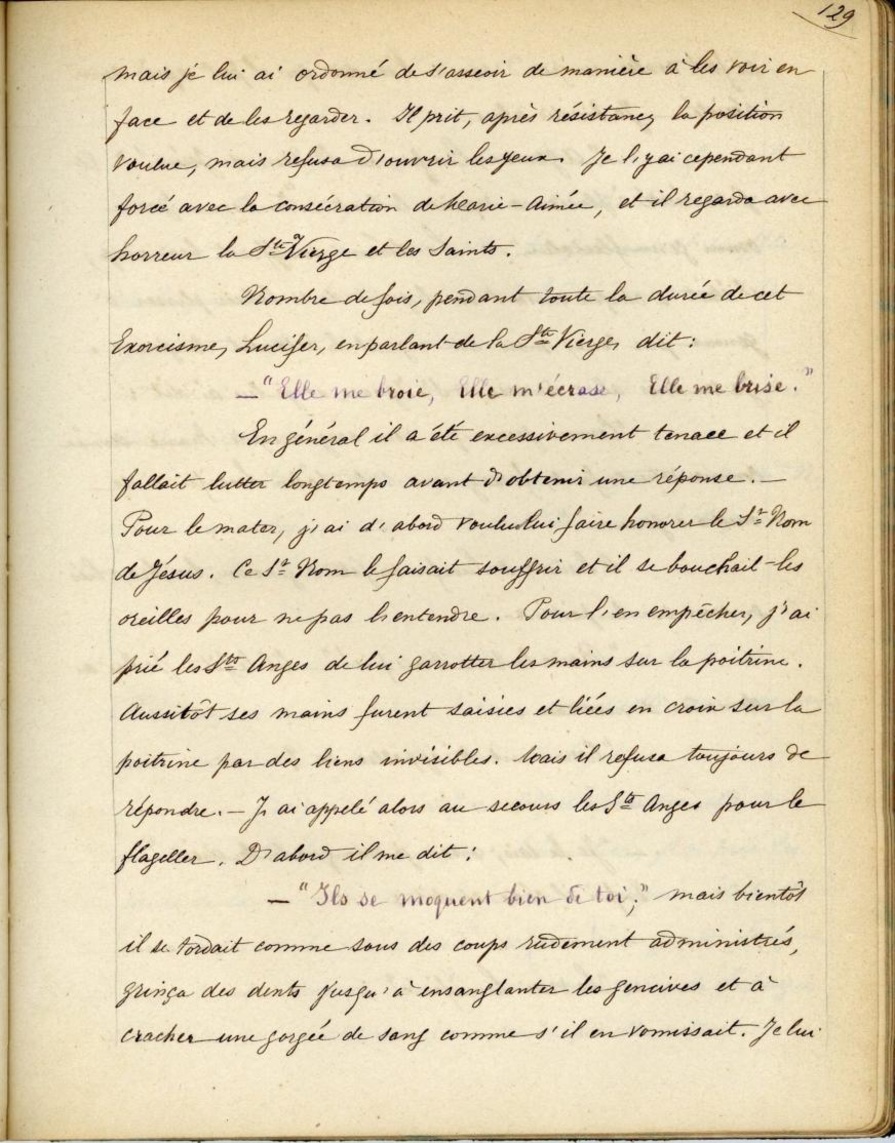 129
mais je lui ai ordonné de s'asseoir de manière à les voir en
face et de les regarder. Il prit, après résistance, la position
voulue, mais refusa d'ouvrir les yeux. Je l'y ai cependant
forcé avec la consécration de Marie-Aimée, et il regarda avec
horreur la Ste Vierge et les Saints.
Nombre de fois, pendant toute la durée de cet
Exorcisme, Lucifer, en parlant de la Ste Vierge, dit:
— "Elle me broie, Elle m'écrase, Elle me brise."
En général il a été excessivement tenace et il
fallait lutter longtemps avant d'obtenir une réponse. —
Pour le mater, j'ai d'abord voulu lui faire honorer le St Nom
de Jésus. Ce St Nom le faisait souffrir et il se bouchait les
oreilles pour ne pas l'entendre. Pour l'en empêcher, j'ai
prié les Sts Anges de lui garrotter les mains sur la poitrine.
Aussitôt ses mains furent saisies et liées en croix sur la
poitrine par des liens invisibles. Mais il refusa toujours de
répondre. — J'ai appelé alors au secours les Sts Anges pour le
flageller. D'abord il me dit:
— "Ils se moquent bien de toi;" mais bientôt
il se tordait comme sous des coups rudement administrés,
grinça des dents jusqu'à ensanglanter les gencives et à
cracher une gorgée de sang comme s'il en vomissait. Je lui